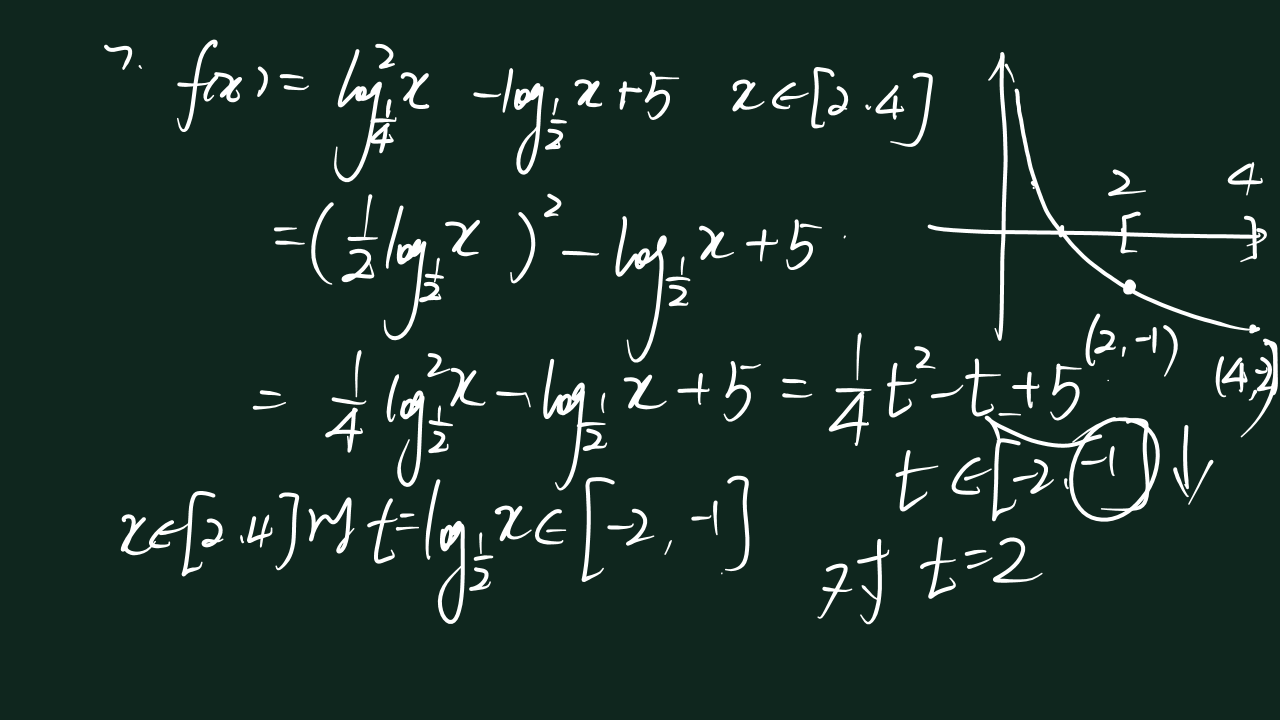 7. f(x) = log²_{1/4} x - log_{1/2} x + 5 x ∈ [2.4]
= (1/2 log_{1/2} x)² - log_{1/2} x + 5
= 1/4 log²_{1/2} x - log_{1/2} x + 5 = 1/4 t² - t + 5
t ∈ [-2. -1] ↓
x ∈ [2.4] 则 t = log_{1/2} x ∈ [-2, -1]
对 t = 2
2 4
[ ]
(2, -1)
(4, -2)